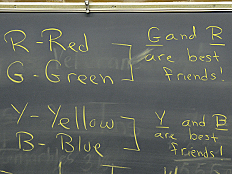 R-Red
G-Green
G and R
are best
friends!
Y-Yellow
B-Blue
Y and B
are best
friends!